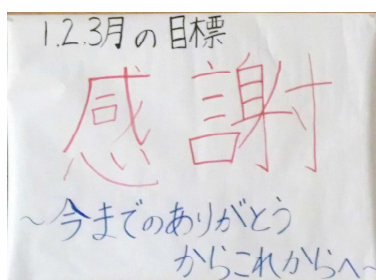 1.2.3月の目標
感謝
～今までのありがとう
からこれからへ～